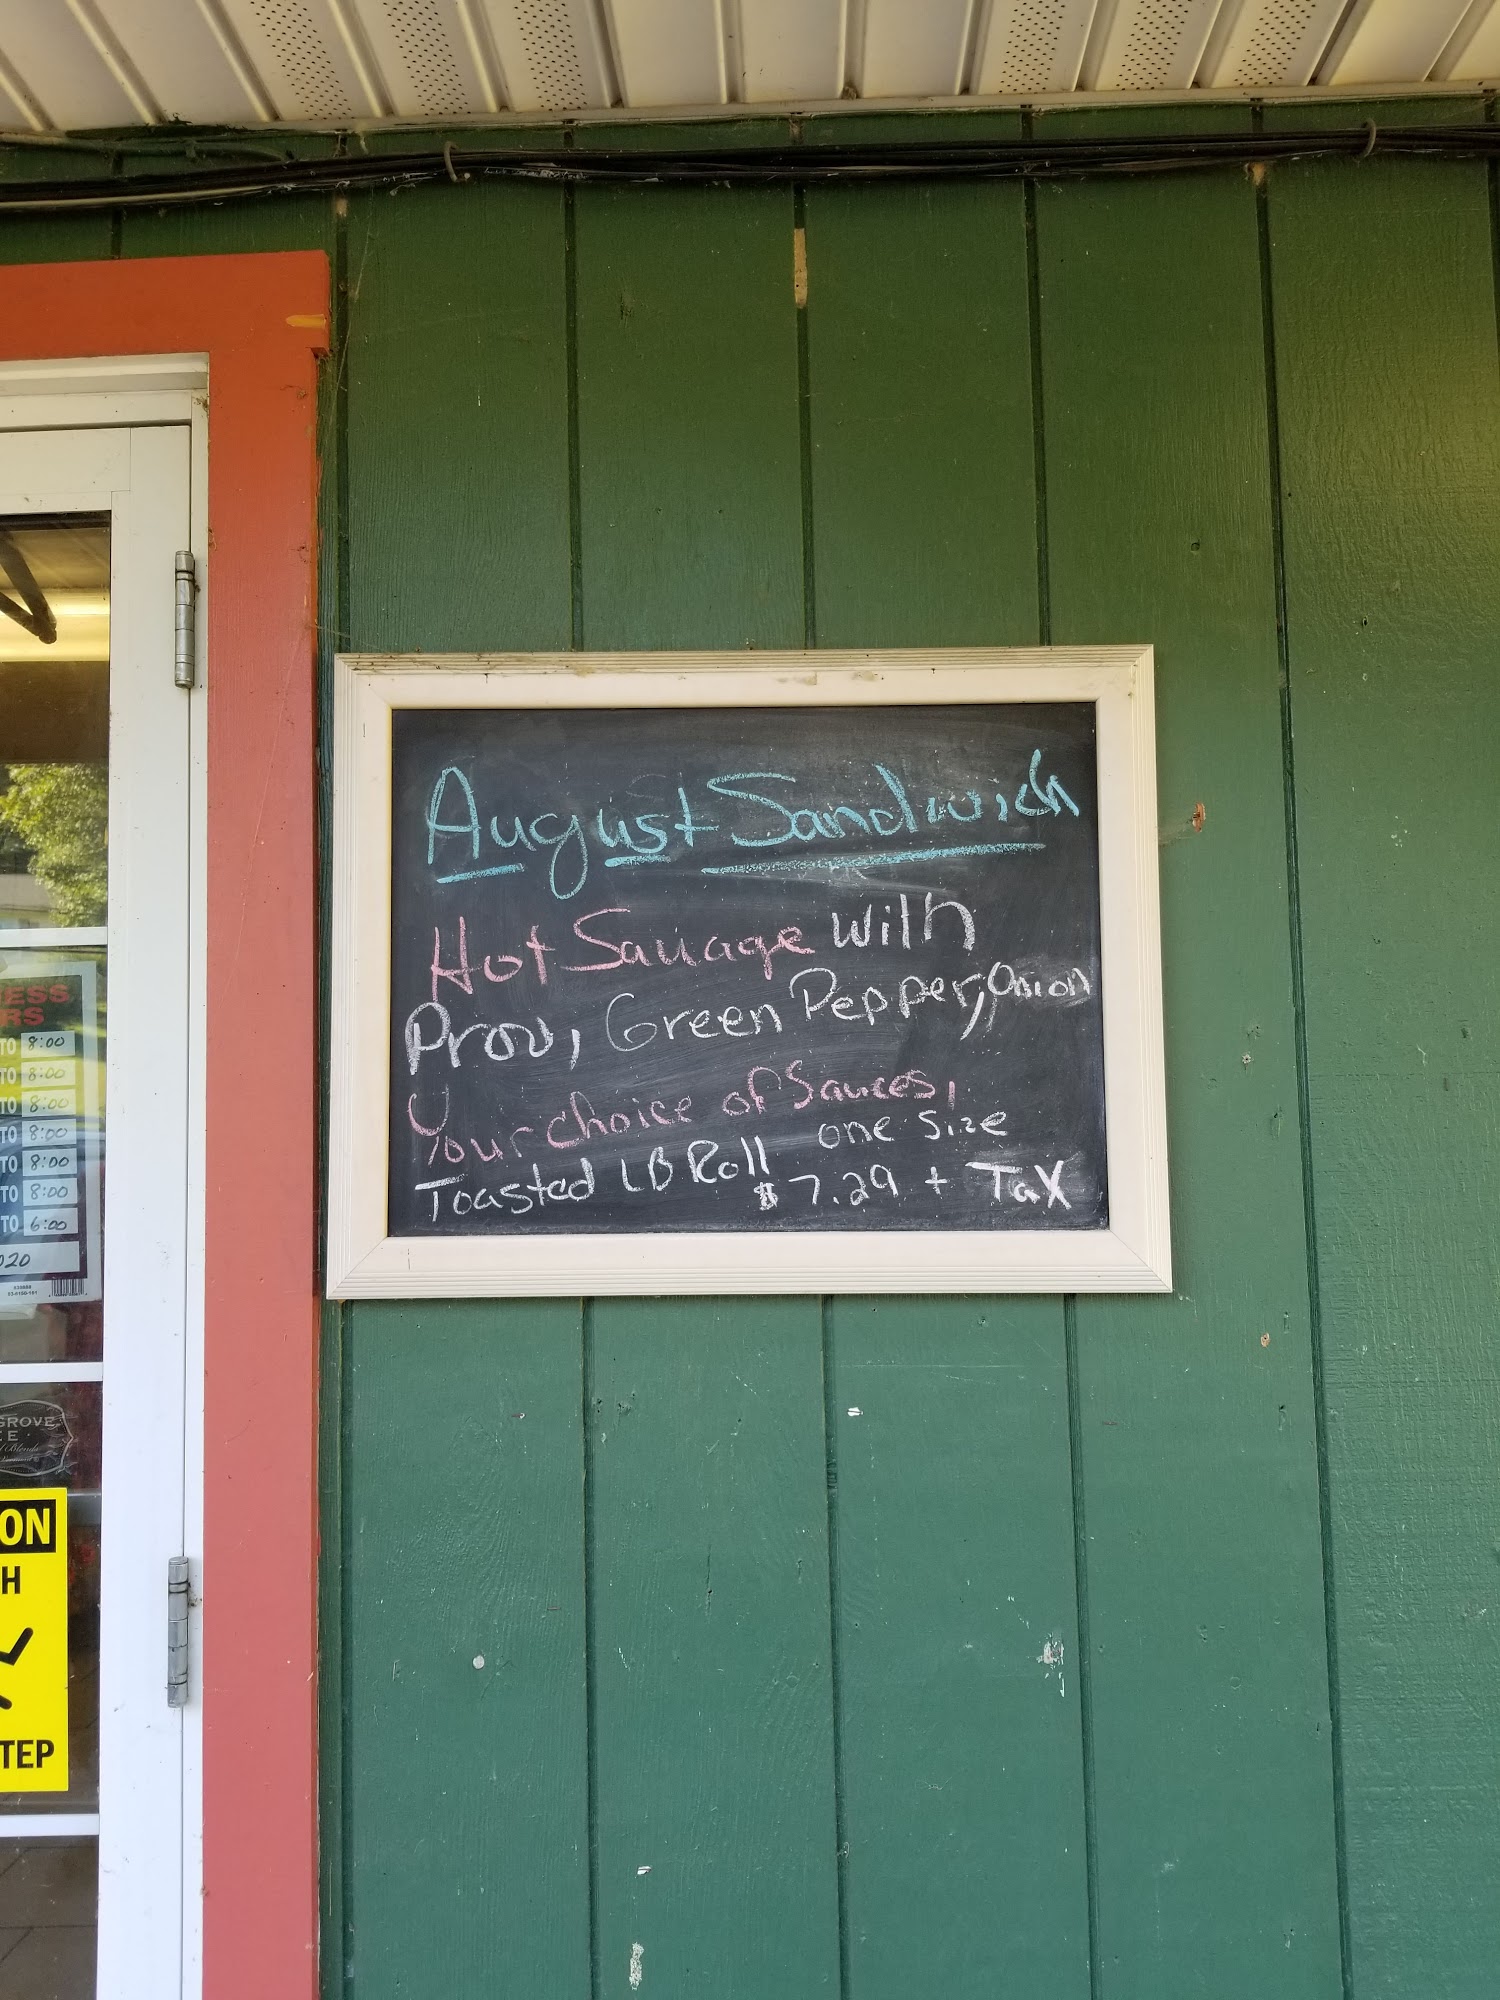 August Sandwich
Hot Sauuage with
Prov, Green Pepper, Onion
Your choice of Sauces,
Toasted LB Roll one size
$7.29 + Tax
ESS
RS
TO 8:00
TO 8:00
TO 8:00
TO 8:00
TO 8:00
TO 8:00
TO 6:00
020
GROVE
EE
Blends
ON
H
TEP